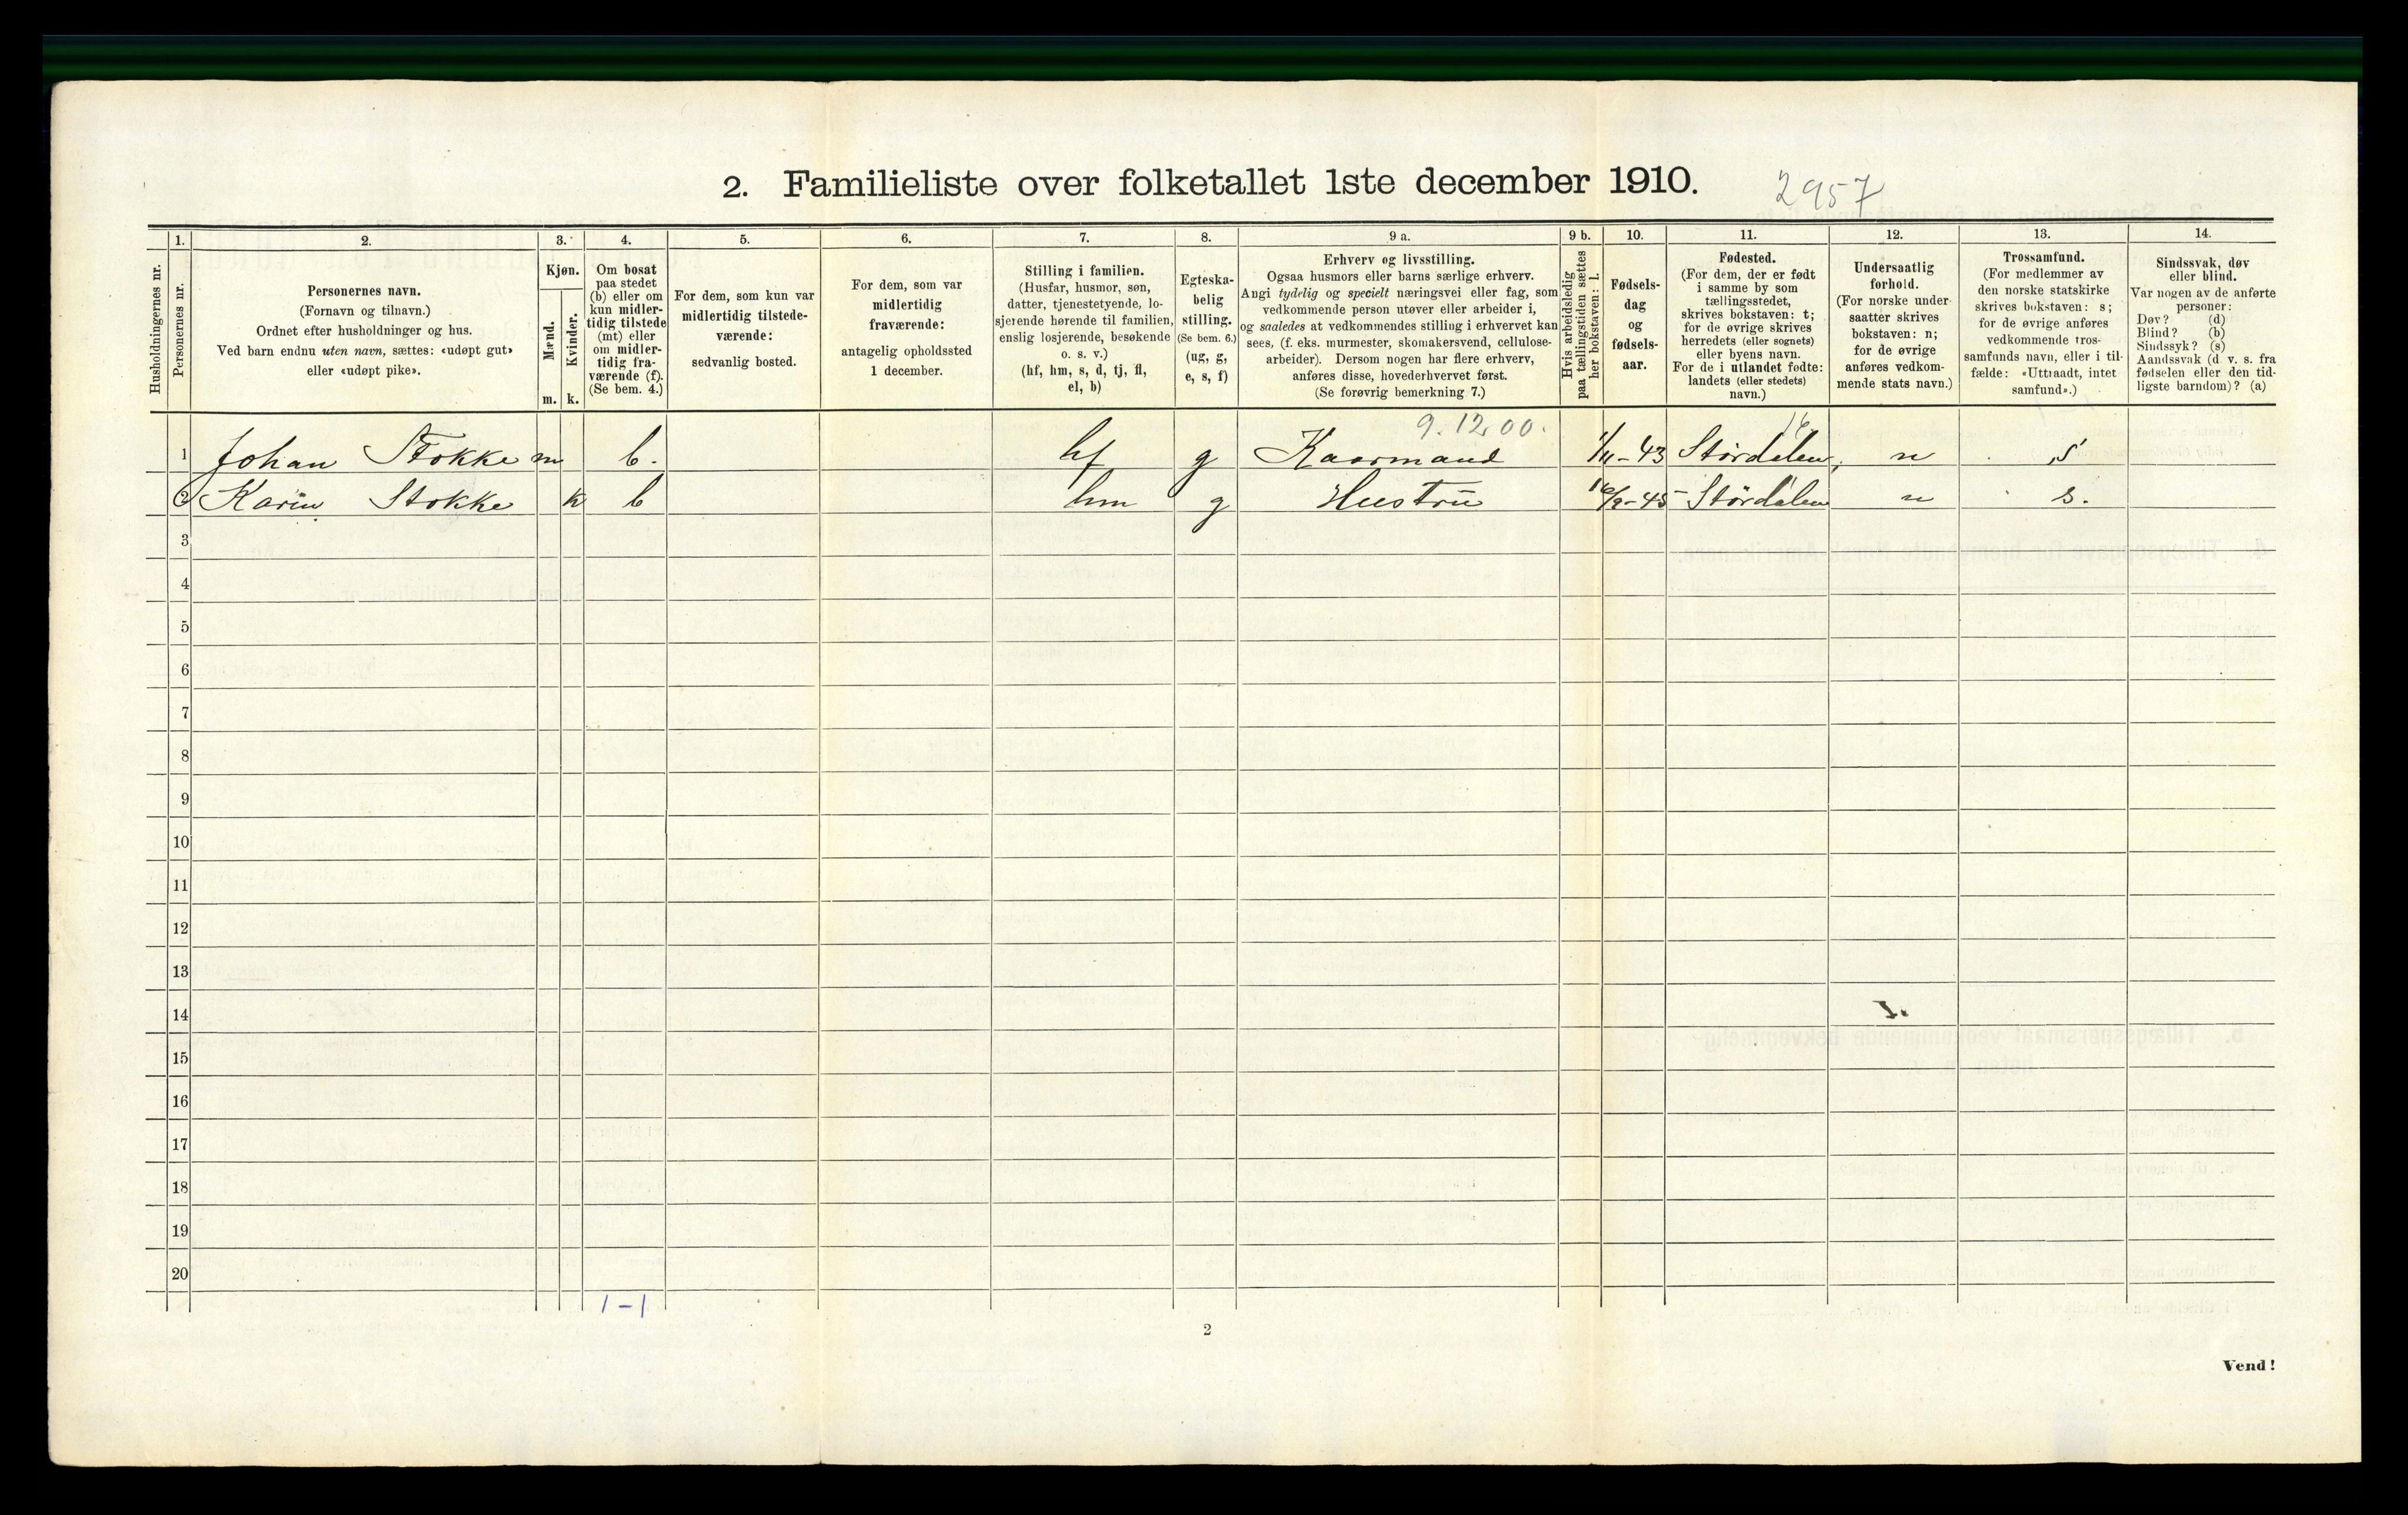 2. Familieliste over folketallet 1ste december 1910.
2957
Husholdningernes nr.
1.
Personernes nr.
2.
Personernes navn.
(Fornavn og tilnavn.)
Ordnet efter husholdninger og hus.
Ved barn endnu uten navn, sættes: «udøpt gut»
eller «udøpt pike».
3.
Kjøn.
Mænd.
Kvinder.
m. k.
4.
Om bosat
paa stedet
(b) eller om
kun midler-
tidig tilstede
(mt) eller
om midler-
tidig fra-
værende (f).
(Se bem. 4.)
5.
For dem, som kun var
midlertidig tilstede-
værende:
sedvanlig bosted.
6.
For dem, som var
midlertidig
fraværende:
antagelig opholdssted
1 december.
7.
Stilling i familien.
(Husfar, husmor, søn,
datter, tjenestetyende, lo-
sjerende hørende til familien,
enslig losjerende, besøkende
o. s. v.)
(hf, hm, s, d, tj, fl,
el, b)
8.
Egteska-
belig
stilling.
(Se bem. 6.)
(ug, g,
e, s, f)
9 a.
Erhverv og livsstilling.
Ogsaa husmors eller barns særlige erhverv.
Angi tydelig og specielt næringsvei eller fag, som
vedkommende person utøver eller arbeider i,
og saaledes at vedkommendes stilling i erhvervet kan
sees, (f. eks. murmester, skomakersvend, cellulose-
arbeider). Dersom nogen har flere erhverv,
anføres disse, hovederhvervet først.
(Se forøvrig bemerkning 7.)
9 b.
Hvis arbeidsledig
paa tællingstiden sættes
her bokstaven: l.
10.
Fødsels-
dag
og
fødsels-
aar.
11.
Fødested.
(For dem, der er født
i samme by som
tællingsstedet,
skrives bokstaven: t;
for de øvrige skrives
herredets (eller sognets)
eller byens navn.
For de i utlandet fødte:
landets (eller stedets)
navn.)
12.
Undersaatlig
forhold.
(For norske under-
saatter skrives
bokstaven: n;
for de øvrige
anføres vedkom-
mende stats navn.)
13.
Trossamfund.
(For medlemmer av
den norske statskirke
skrives bokstaven: s;
for de øvrige anføres
vedkommende tros-
samfunds navn, eller i til-
fælde: «Uttraadt, intet
samfund».)
14.
Sindssvak, døv
eller blind.
Var nogen av de anførte
personer:
Døv? (d)
Blind? (b)
Sindssyk? (s)
Aandssvak (d. v. s. fra
fødselen eller den tid-
ligste barndom)? (a)
9.12.00.
1 Johan Stokke m b. hf g Kaarmand 1/11-43 Størdalen, n s
2 Karin Stokke k b hm g Hustru 16/9-45 - Størdalen n s.
3
4
5
6
7
8
9
10
11
12
13
14
15
16
17
18
19
20
1-1
2
Vend!